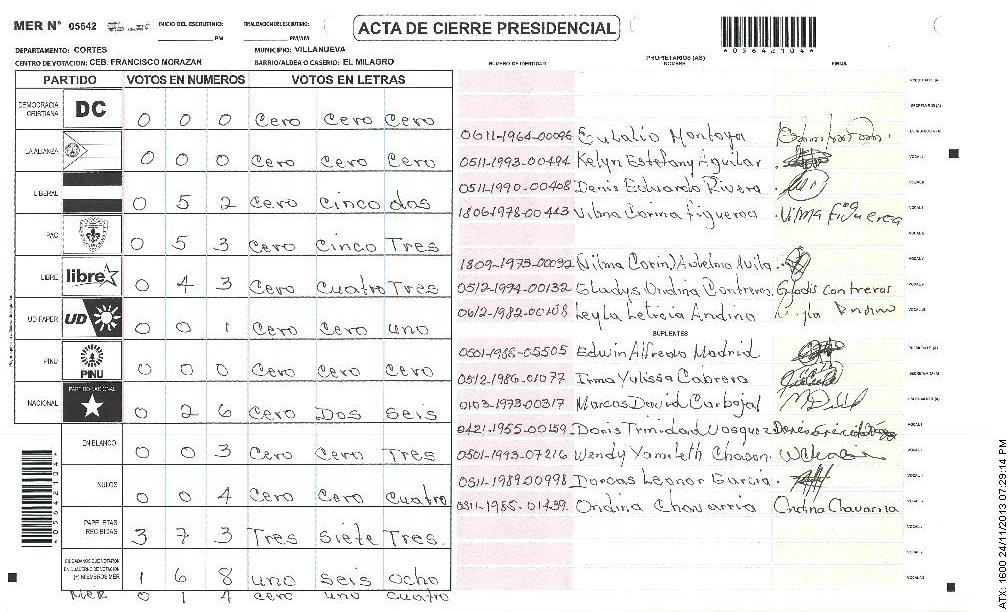 MER N° 05642 INICIO DEL ESCRUTINIO: PM FINALIZACION ESCRUTINIO: PM/AM ACTA DE CIERRE PRESIDENCIAL
DEPARTAMENTO: CORTES MUNICIPIO: VILLANUEVA
CENTRO DE VOTACION: CEB. FRANCISCO MORAZAN BARRIO/ALDEA O CASERIO: EL MILAGRO
NUMERO DE IDENTIDAD PROPIETARIOS (AS) NOMBRE FIRMA
PARTIDO VOTOS EN NUMEROS VOTOS EN LETRAS
DEMOCRACIA CRISTIANA DC 0 0 0 Cero Cero Cero
LA ALIANZA 0 0 0 Cero Cero Cero
LIBERAL 0 5 2 Cero Cinco dos
PAC 0 5 3 Cero Cinco Tres
LIBRE libre 0 4 3 Cero Cuatro Tres
UD-FAPER UD 0 0 1 Cero Cero uno
PINU PINU 0 0 0 Cero Cero Cero
NACIONAL PARTIDO NACIONAL 0 2 6 Cero Dos Seis
EN BLANCO 0 0 3 Cero Cero Tres
NULOS 0 0 4 Cero Cero Cuatro
PAPELETAS RECIBIDAS 3 7 3 Tres Siete Tres.
CIUDADANOS QUE VOTARON EN CUADERNO DE VOTACION (+) MIEMBROS MER 1 6 8 uno seis ocho
MER 0 1 4 cero uno cuatro
0611-1964-00096 Eulalio Montoya
0511-1993-00494 Kelyn Estefany Aguilar
0511-1990-00408 Denis Eduardo Rivera
1806-1978-00413 Vilma Corina figueroa Vilma figueroa
1809-1973-00032
0512-1994-00132 Gladys Ondina Contreras Gladis Contreras
0612-1982-00108 Leyla Letecia Andino
SUPLENTES
0501-1986-05505 Edwin Alfredo Madrid
0512-1986-01077 Irma Yulissa Cabrera
0103-1973-00317 Marcos David Carbajal
0421-1955-00159 Doris Trinidad Vasquez
0501-1993-07216 Wendy Yamileth Chacon.
0511-1989-00998 Dorcas Leonor Garcia.
0511-1985-01439 Ondina Chavarria Ondina Chavarria
*05642104*
ATX: 1600 24/11/2013 07:29:14 PM